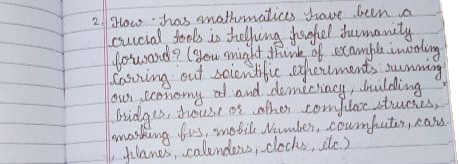 2. How has mathematics have been a
crucial tools is helping propel humanity
forward? (you might think of example involing
carring out scientific experiments: running
our economy and demecracy, building
bridges, house or other complax strucres,
making bus, mobile Number, coumputer, cars
planes, calenders, clocks, etc.)